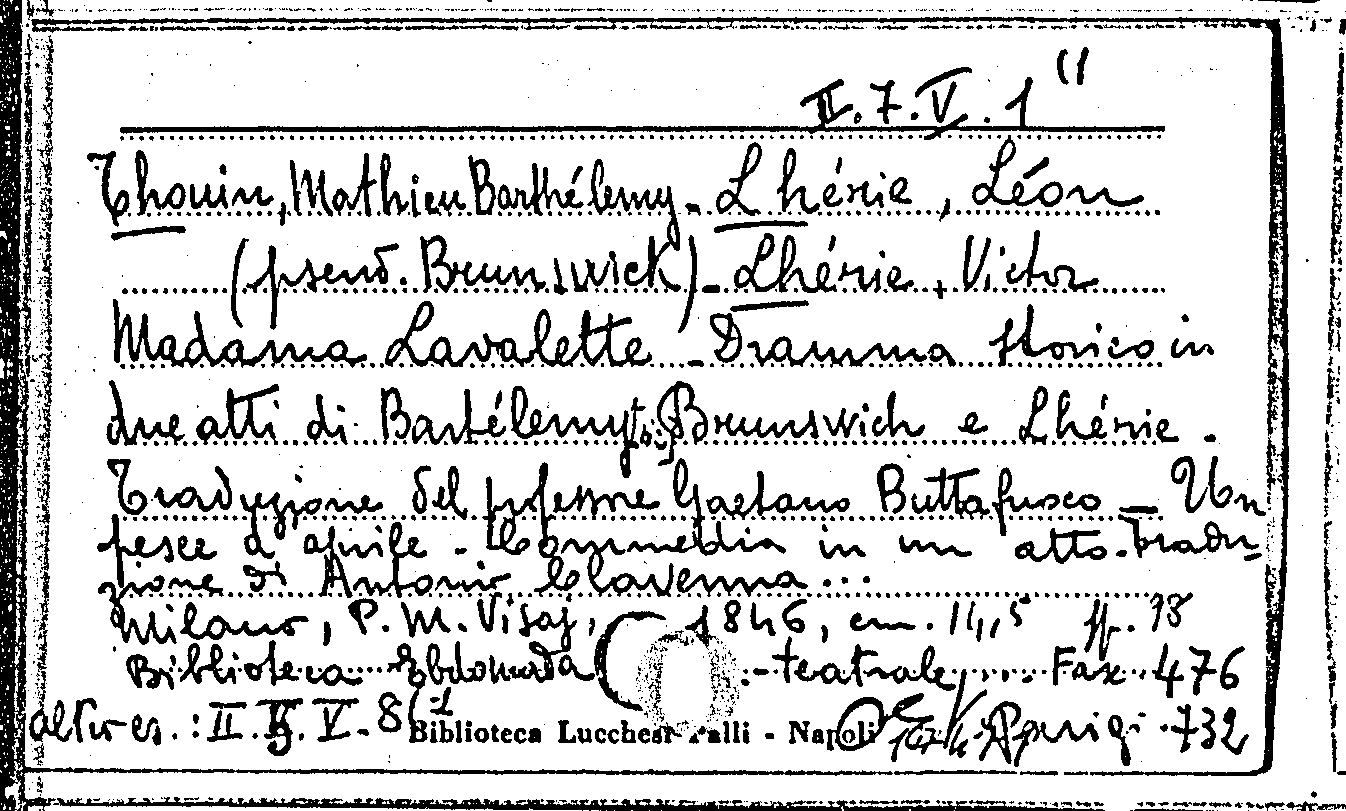 II.7.V.1 "
Thouin, Mathieu Barthélemy - Lhérie, Léon
(pseud. Brunswick) - Lhérie, Victor
Madama Lavalette - Dramma storico in
due atti di Bartélemy, Brunswich e Lhérie.
Traduzione del professore Gaetano Buttafuoco - Un
pesce d'aprile - Commedia in un atto. Tradu=
zione di Antonio Clavenna...
Milano, P. M. Visaj, 1846, cm. 14,5 pp. 78
Biblioteca Ebdomada - teatrale, ... Fax 476
altro es.: II. V. 8
Biblioteca Lucchesi Palli - Napoli Parigi 732